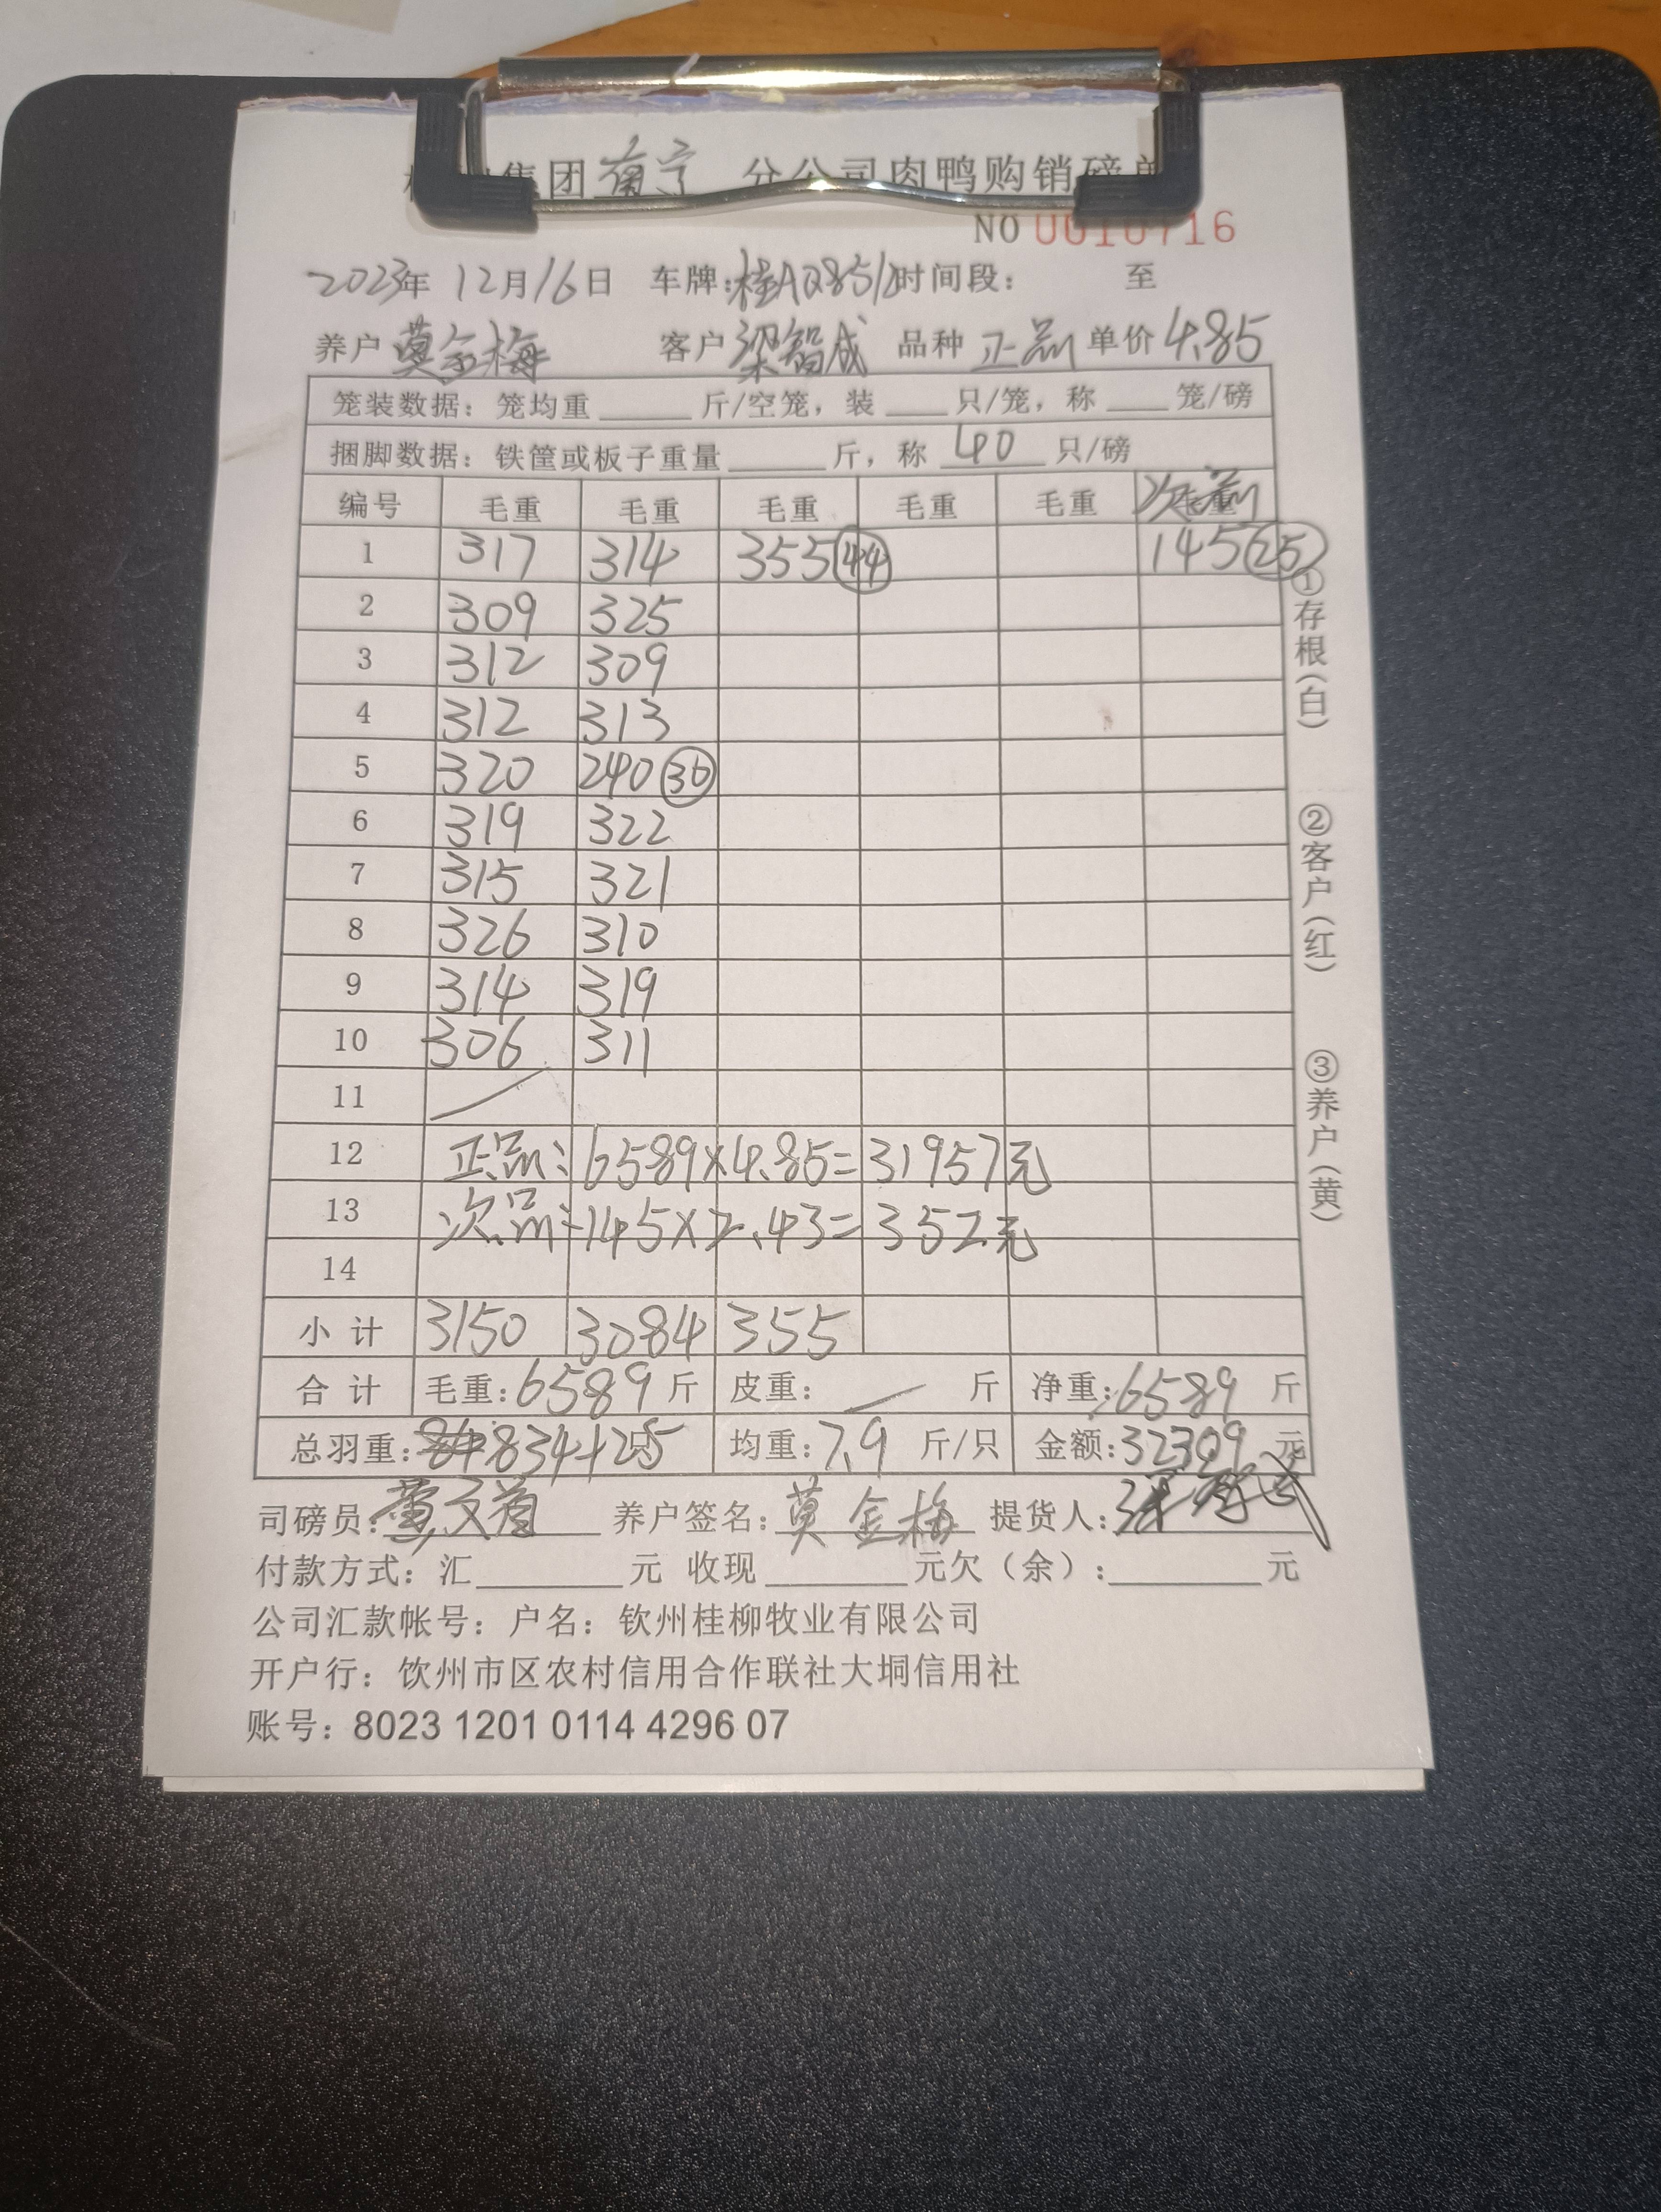 集团南宁 分公司肉鸭购销磅单
NO 0010716
2023年 12月16日 车牌:桂AQ851 时间段: 至
养户 莫金梅 客户 梁智成 品种 正品 单价 4.85
笼装数据: 笼均重 斤/空笼, 装 只/笼, 称 笼/磅
捆脚数据: 铁筐或板子重量 斤, 称 40 只/磅
编号 毛重 毛重 毛重 毛重 毛重 次品
1 317 314 355 44 145 25
2 309 325
3 312 309
4 312 313
5 320 240 30
6 319 322
7 315 321
8 326 310
9 314 319
10 306 311
11
12 正品: 6589×4.85=31957元
13 次品: 145×2.43=352元
14
小计 3150 3084 355
合计 毛重: 6589 斤 皮重: 斤 净重: 6589 斤
总羽重: 834+25 均重: 7.9 斤/只 金额: 32309 元
司磅员: 养户签名: 莫金梅 提货人:
付款方式: 汇 元 收现 元欠(余): 元
公司汇款帐号: 户名: 钦州桂柳牧业有限公司
开户行: 饮州市区农村信用合作联社大垌信用社
账号: 8023 1201 0114 4296 07
①存根(白)
②客户(红)
③养户(黄)